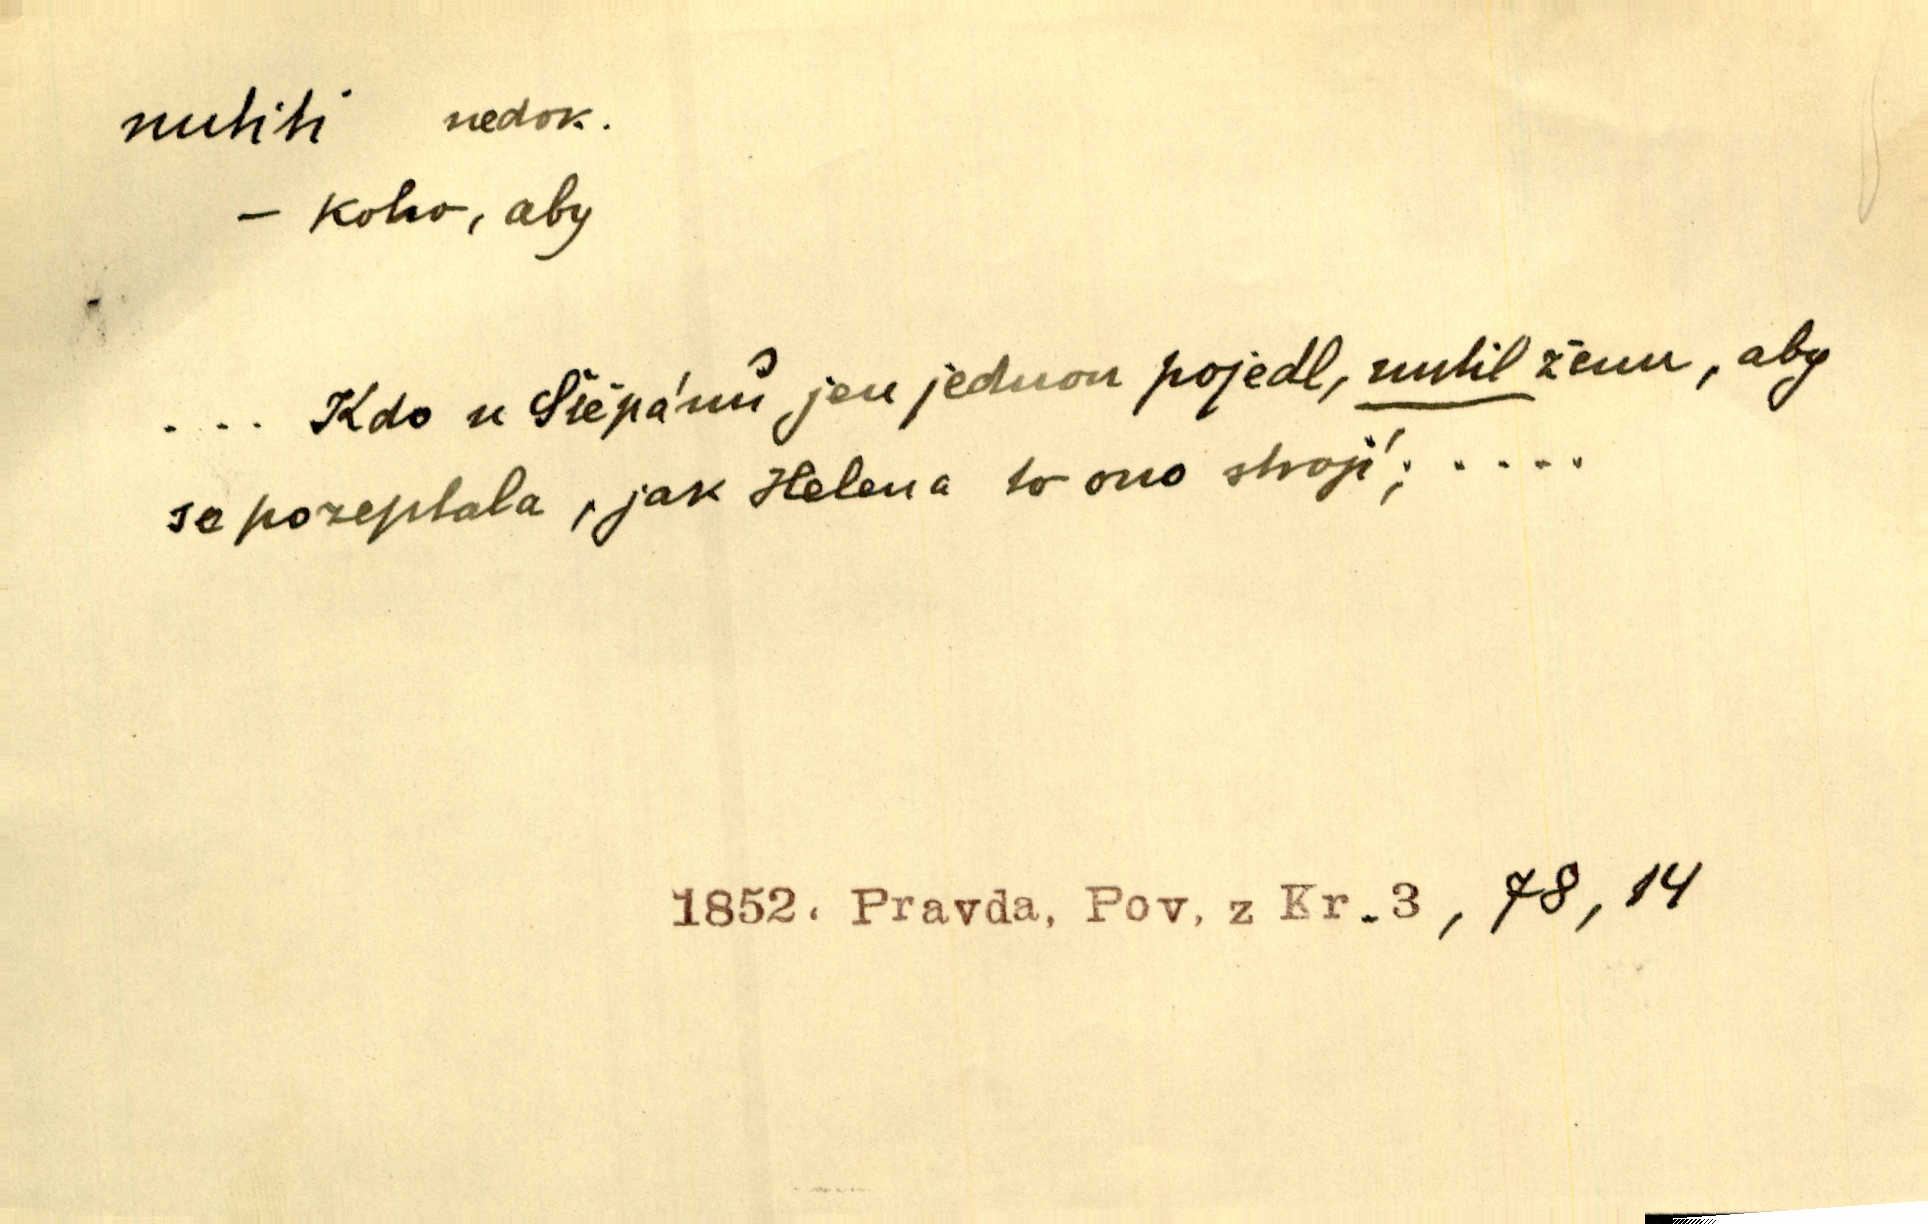 nutiti nedok.
– koho, aby
. . . . Kdo u Štěpánů jen jednou pojedl, nutil ženu, aby
se pozeptala, jak Helena to ono strojí; . . . . .
1852. Pravda, Pov. z Kr. 3, 78, 14